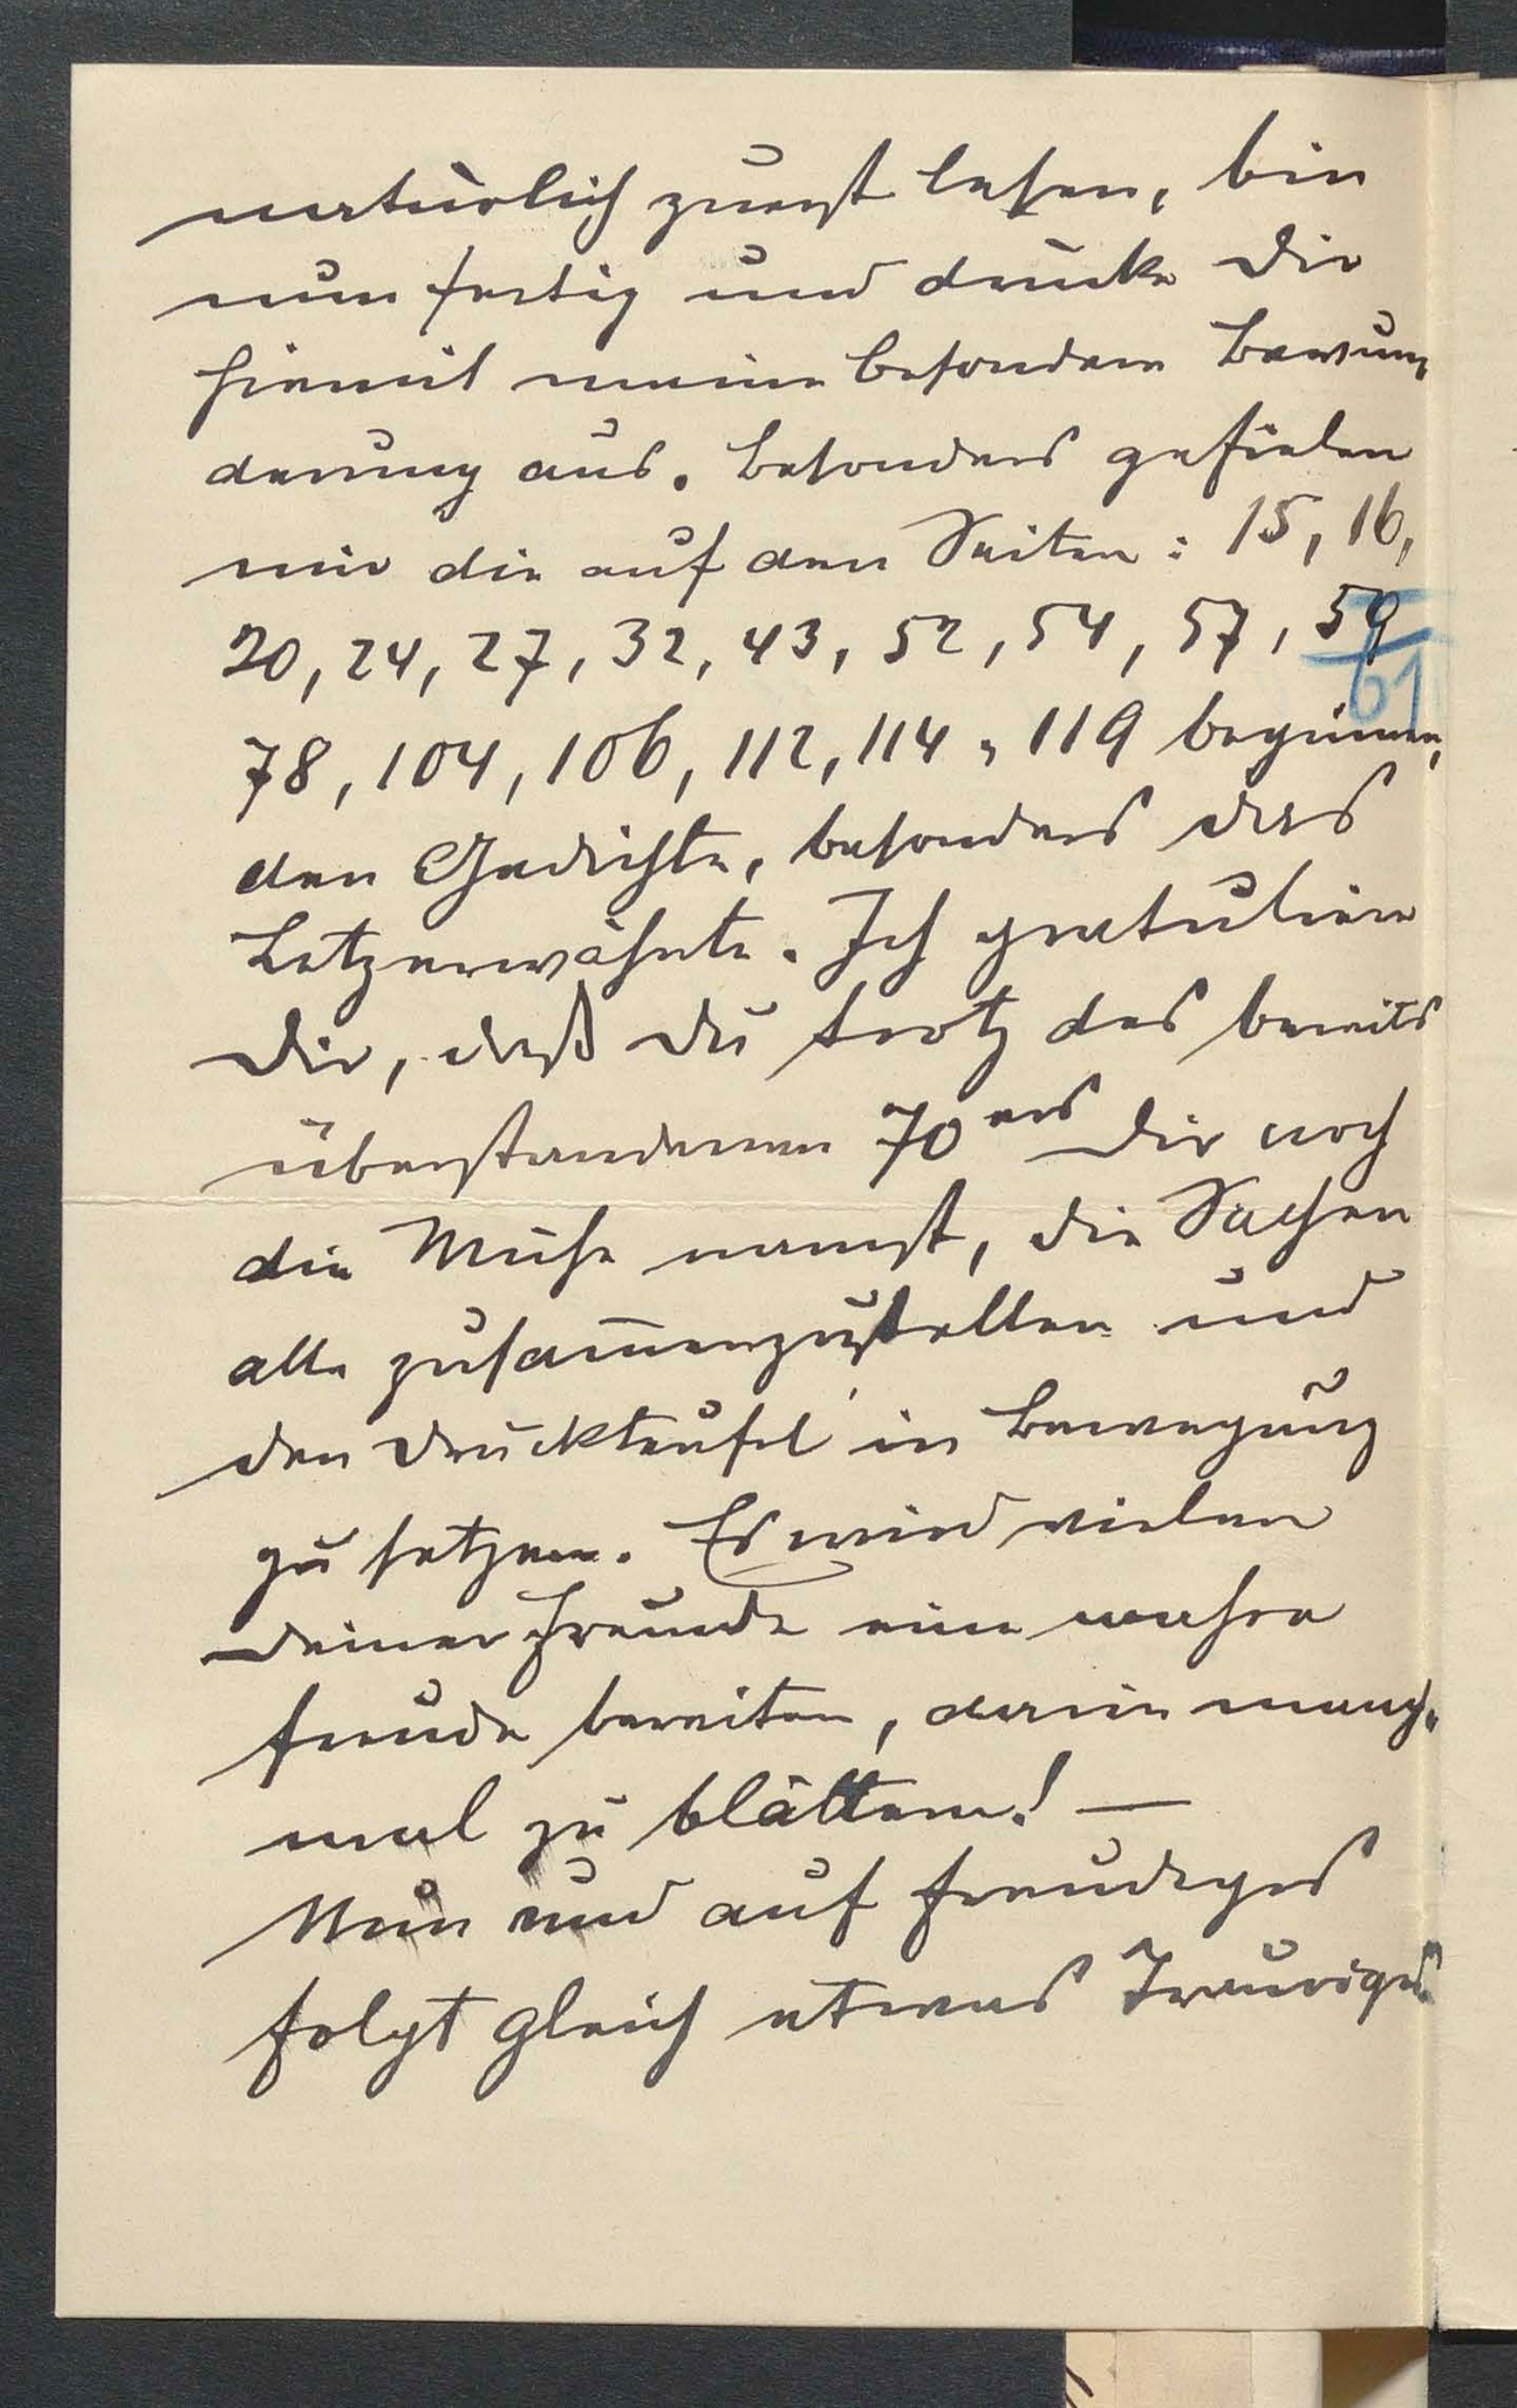 natürlich zuerst lesen, bin
nun fertig und drücke Dir
hiemit meine besondere Bewun„
derung aus. Besonders gefielen
mir die auf den Seiten: 15, 16,
20, 24, 27, 32, 43, 52, 54, 57, 59
61
78, 104, 106, 112, 114, 119 beginnen„
den Gedichte, besonders das
Letzerwähnte. Ich gratuliere
Dir, daß Du trotz des bereits
überstandenen 70ers Dir noch
die Mühe namst, die Sachen
alle zusam̅enzustellen und
den Druckteufel in Bewegung
zu setzen. Es wird vielen
Deiner Freunde eine wahre
Freude bereiten, darin manch„
mal zu blättern! —
Nun und auf freudiges
folgt gleich etwas Trauriges.